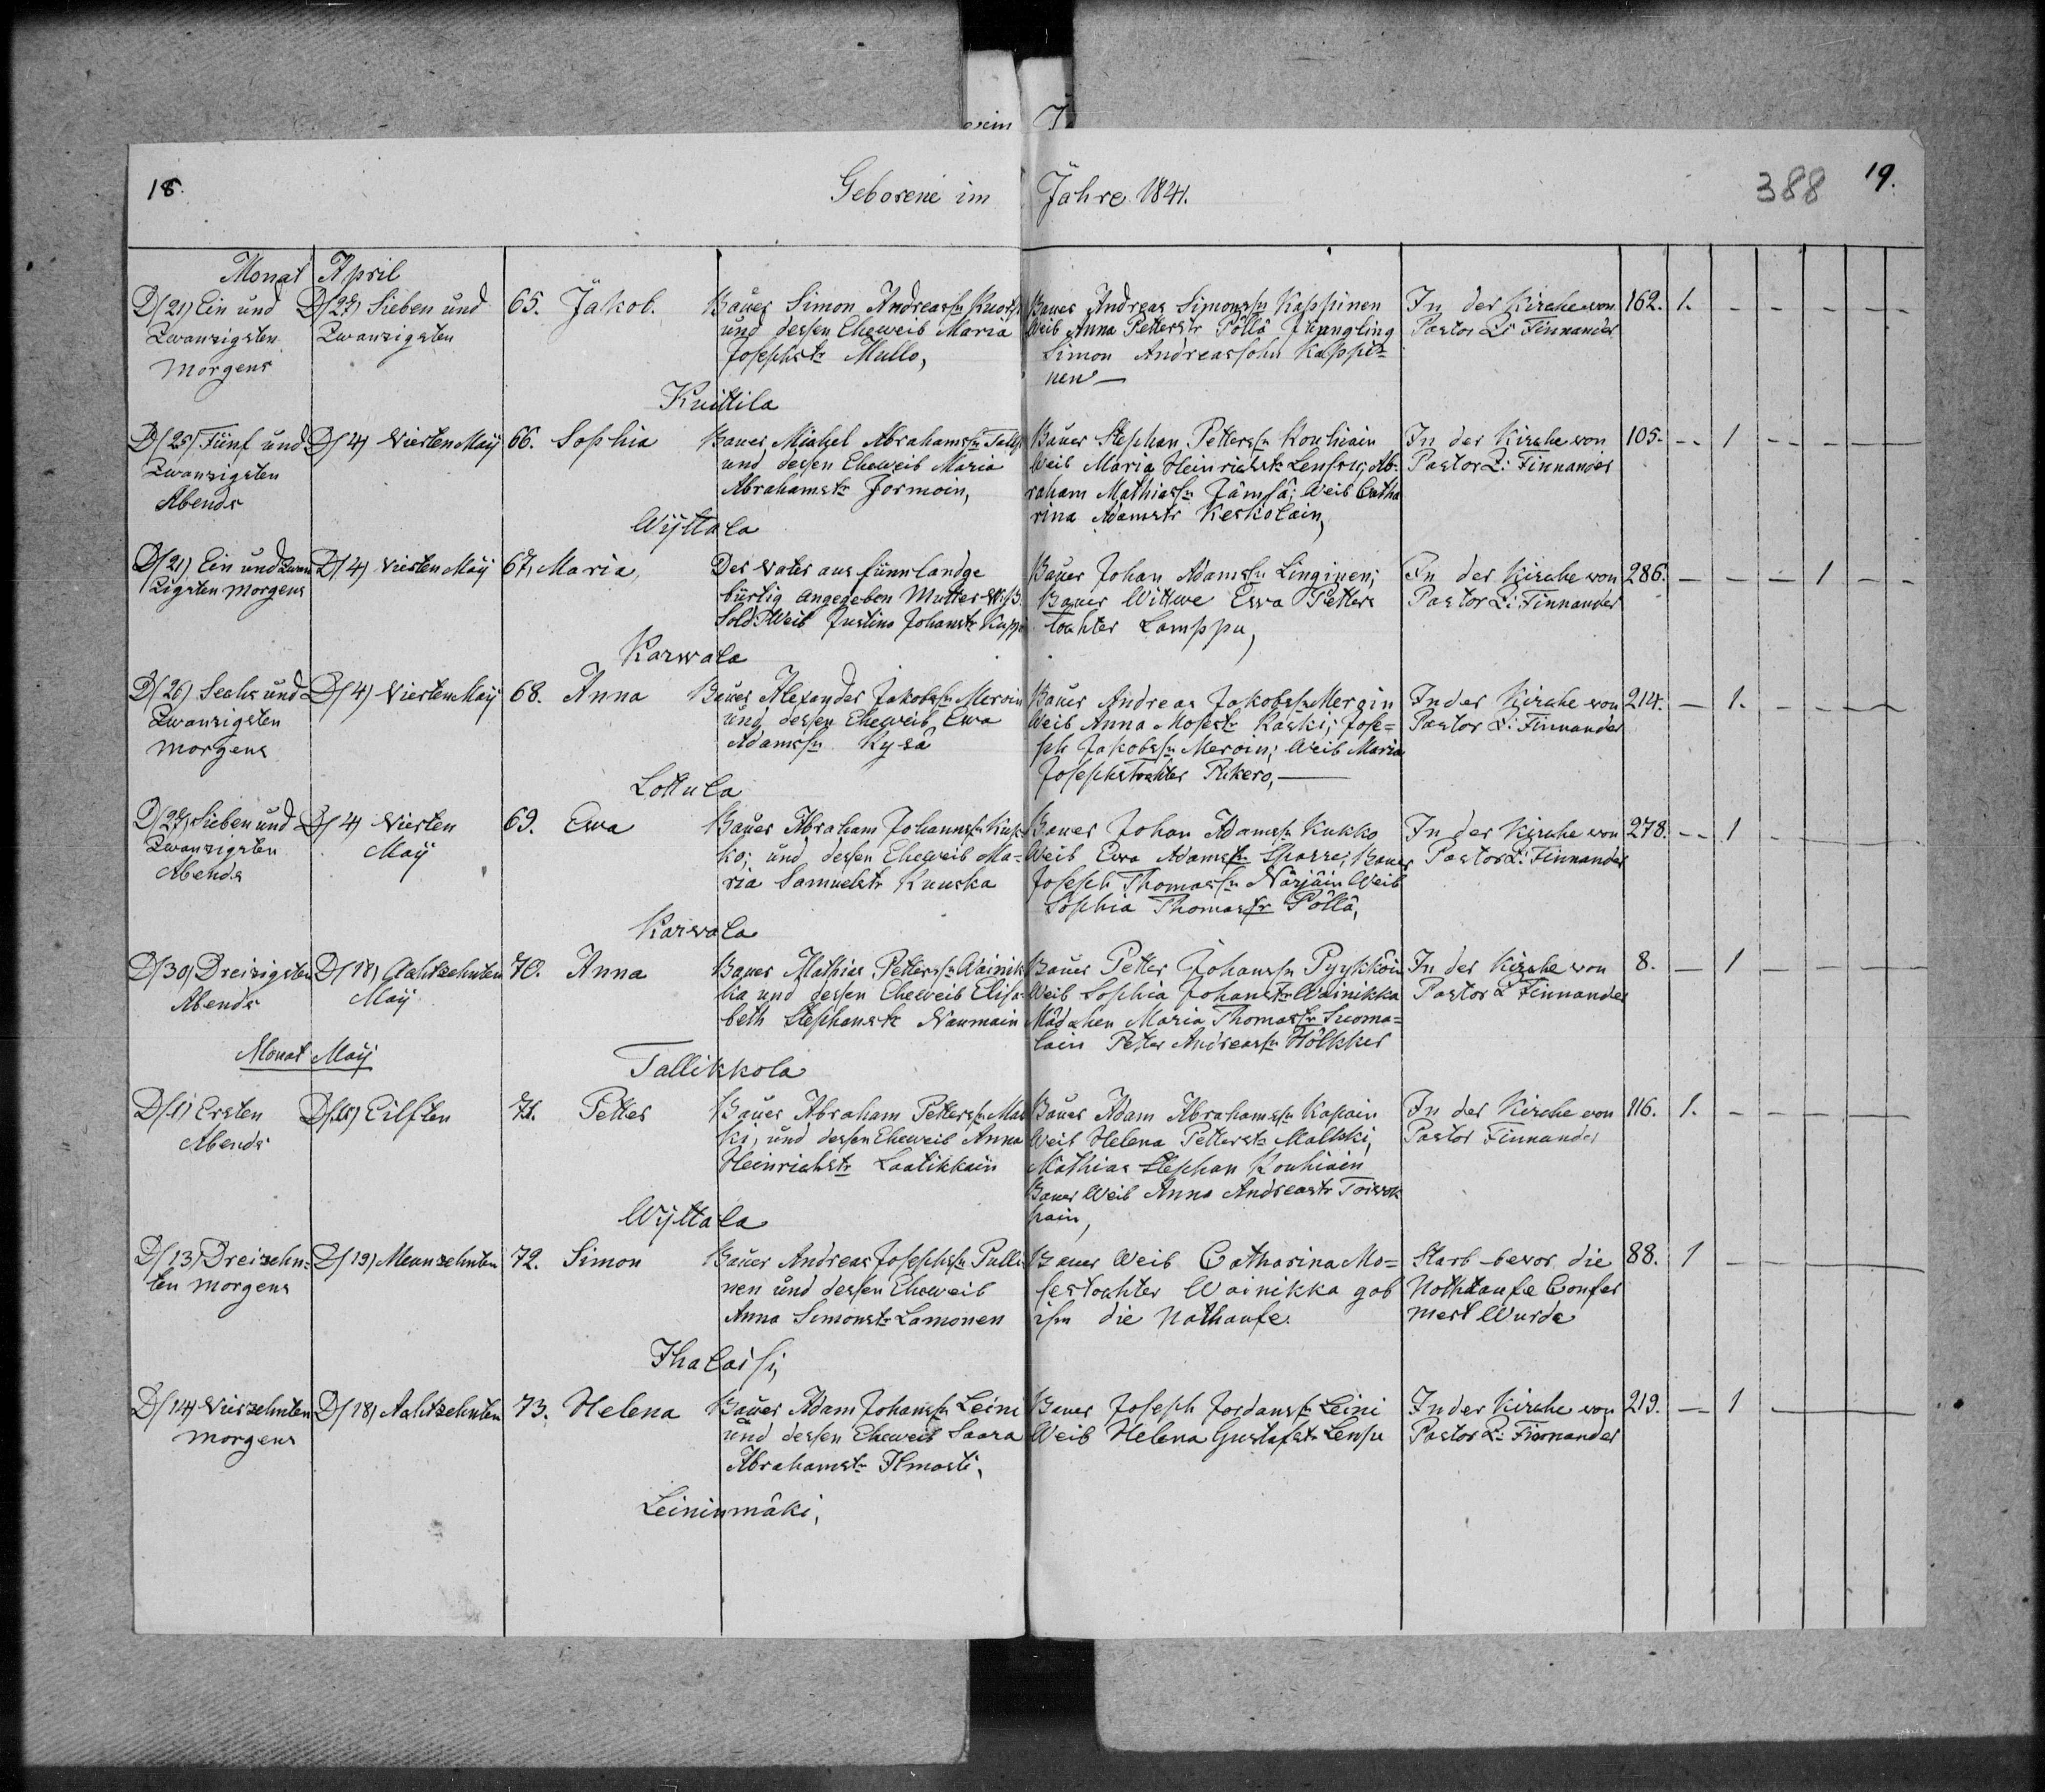 18.
Geborene im Jahre 1841.
388 19.
Monat April
D/21) Ein und Zwanzigsten Morgens
D/27) Sieben und Zwanzigsten
65. Jakob.
Bauer Simon Andreassn
und dessen Eheweib Maria
Josephstr Mullo,
Bauer Andreas Simonssn Kappinen
Weib Anna Petterstr Pöllä Jüungling
Simon Andreassohn Kappi=
nen —
In der Kirche von
Pastor L: Finnander
162. 1. - - - - -
Kuittila
D/25) Fünf und
Zwanzigsten
Abends
D/4) Vierten Maÿ
66. Sophia
Bauer Mickel Abrahamssn
und dessen Eheweib Maria
Abrahamstr Jormoin,
Bauer Stephan Petterssn Kouhiain
Weib Maria Heinrichstr Ab-
raham Mathiassn Jämsä; Weib Catha
rina Adamstr Keskolain,
In der Kirche von
Pastor L: Finnander
105. - 1 - - - -
Wÿttala
D/21) Ein und Zwan
zigsten Morgens
D/4) Vierten Maÿ
67, Maria,
Der Vater aus Fünnlandge
bürtig angegeben Mutter
Sold: Weib Justina Johanstr
Bauer Johan Adamssn Linginen;
Bauer Wittwe Ewa Petters
tochter Lamppu,
In der Kirche von
Pastor L: Finnander
286. - - - 1 - -
Karwala
D/26) Sechs und
Zwanzigsten
Morgens
D/4) Vierten Maÿ
68. Anna
Bauer Alexander Jakobssn Meroin
und dessen Eheweib Ewa
Adamssn Kysä
Bauer Andreas Jakobssn Meroin
Weib Anna Mosestr Kaski; Jose=
ph Jakobssn Meroin; Weib Maria
Josephstochter Pukero, —
In der Kirche von
Pastor L: Finnander
214. - 1. - - - -
Lottula
D/27) Sieben und
Zwanzigsten
Abends
D/4) Vierten
Maÿ
69. Ewa
Bauer Abraham Johanssn Kuk
ko; und dessen Eheweib Ma=
ria Samuelstr Kuuska
Bauer Johan Adamssn Kukko
Weib Ewa Adamstr Sparre; Bauer
Joseph Thomassn Närjäin Weib
Sophia Thomastr Pöllä,
In der Kirche von
Pastor L: Finnander
278. - 1 - - - -
Karwala
D/30) Dreizigsten
Abends
D/18) Achtzehnten
Maÿ
70. Anna
Bauer Mathias Petterssn Wainik
ka und dessen Eheweib Elisa-
beth Stephanstr Naumain
Bauer Petter Johanssn Pyykköin
Weib Sophia Johanstr Wainikka
Mädchen Maria Thomasstr Suoma=
lain Petter Andreassn Hölkker
In der Kirche von
Pastor L Finnander
8. - 1 - - - -
Monat Maÿ
Tallikkola
D/1) Ersten
Abends
Eilften
71. Petter
Bauer Abraham Petterssn Mal
ki; und dessen Eheweib Anna
Heinrichstr Laatikkain
Bauer Adam Abrahamssn Kapain
Weib Helena Petterstr Malkki;
Mathias Stephan Kouhiain
Bauer Weib Anna Andreastr
pain,
In der Kirche von
Pastor Finnander
116. 1. - - - - -
Wÿttala
D/13) Dreizehn=
ten Morgens
D/19) Neunzehnten
72. Simon
Bauer Andreas Josephssn Pulli
nen und dessen Eheweib
Anna Simonstr Lamonen
Bauer Weib Catharina Mo=
sestochter Wainikka gab
ihm die Nothaufe.
Starb bevor die
Nothtaufe Confer
mert Wurde
88. 1 - - - - -
Ihalaisi,
D/14) Vierzehnten
Morgens
D/18) Achtzehnten
73. Helena
Bauer Adam Johanssn Leini
und dessen Eheweib Saara
Abrahamstr Ilmasti,
Bauer Joseph Jordanssn Leini
Weib Helena Gustafstr Lensu
In der Kirche von
Pastor L: Finnander
219. - 1 - - - -
Leininmäki,